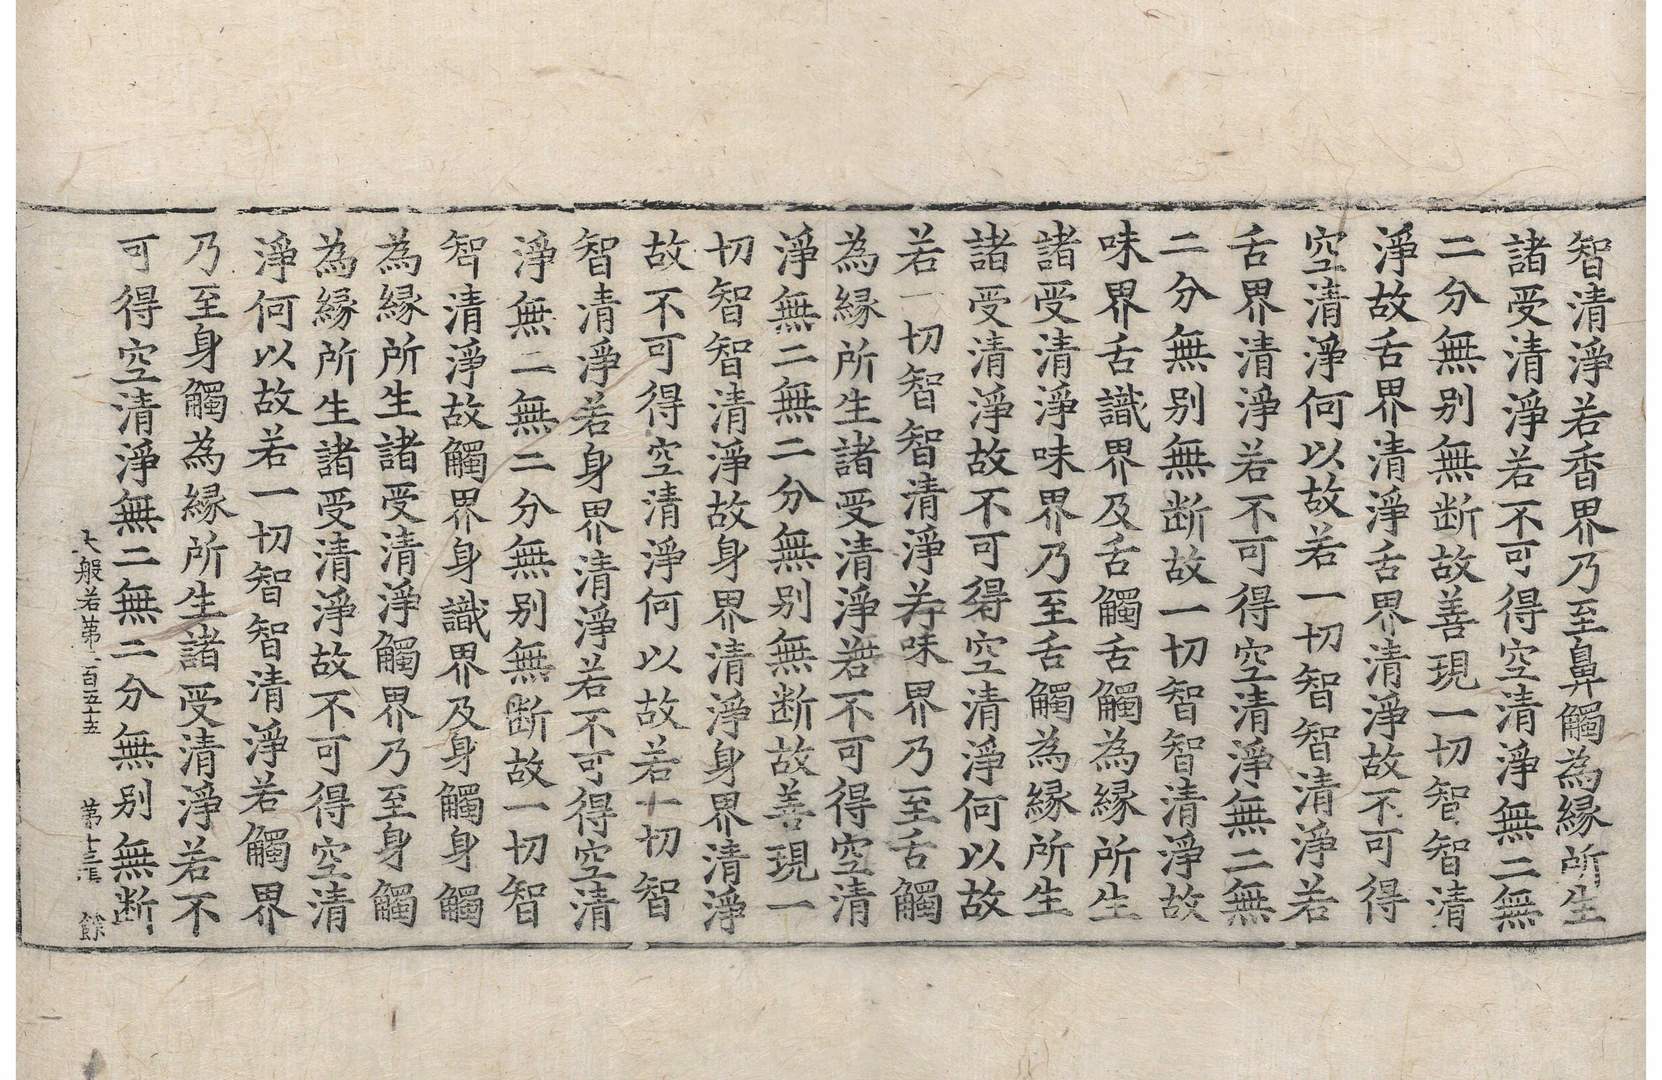 智清淨若香界乃至鼻觸為緣所生
諸受清淨若不可得空清淨無二無
二分無別無断故善現一切智智清
淨故舌界清淨舌界清淨故不可得
空清淨何以故若一切智智清淨若
舌界清淨若不可得空清淨無二無
二分無別無断故一切智智清淨故
味界舌識界及舌觸舌觸為緣所生
諸受清淨味界乃至舌觸為緣所生
諸受清淨故不可得空清淨何以故
若一切智智清淨若味界乃至舌觸
為緣所生諸受清淨若不可得空清
淨無二無二分無別無断故善現一
切智智清淨故身界清淨身界清淨
故不可得空清淨何以故若一切智
智清淨若身界清淨若不可得空清
淨無二無二分無別無断故一切智
智清淨故觸界身識界及身觸身觸
為緣所生諸受清淨觸界乃至身觸
為緣所生諸受清淨故不可得空清
淨何以故若一切智智清淨若觸界
乃至身觸為緣所生諸受清淨若不
可得空清淨無二無二分無別無断
大般若第二百五十五 第十三張 餘